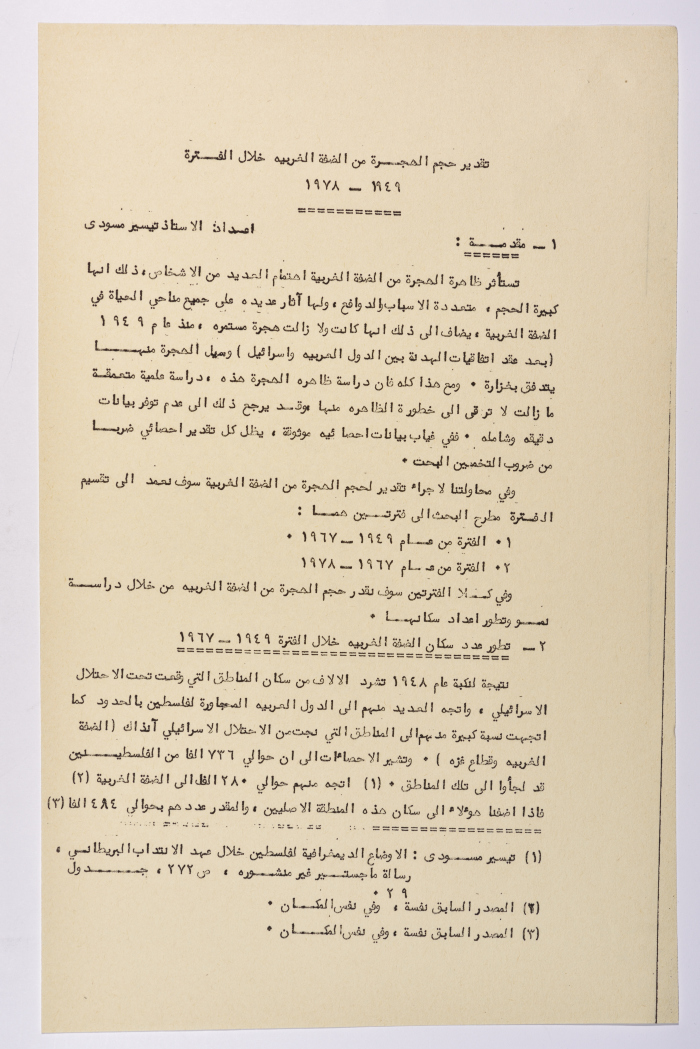 تقدير حجم الهجـــرة من الضفة الغربيه خلال الفــترة
١٩٤٩ ــ ١٩٧٨
===========
١ ــ مقدمـــة :
======
اعداد: الاستاذ تيسير مسودى
تستأثر ظاهرة الهجرة من الضفة الغربية اهتمام العديد من الاشخاص، ذلك انها
كبيرة الحجم ، متعددة الاسباب والدوافع ، ولها آثار عديده على جميع مناحي الحياة في
الضفة الغربية ، يضاف الى ذلك انها كانت ولا زالت هجرة مستمره ، منذ عام ١٩٤٩
(بعد عقد اتفاقيات الهدنة بين الدول العربيه واسرائيل) وسيل الهجرة منهـــا
يتدفق بغزارة ٠ ومع هذا كله فان دراسة ظاهره الهجرة هذه ، دراسة علمية متعمقـة
ما زالت لا ترقى الى خطورة الظاهره منها ،وقـد يرجع ذلك الى عدم توفر بيانات
دقيقه وشامله ٠ ففي غياب بيانات احصائيه موثوقة ، يظل كل تقدير احصائي ضربـا
من ضروب التخمين البحت ٠
وفي محاولتنا لاجراء تقدير لحجم الهجرة من الضفة الغربية سوف نعمد الى تقسيم
الفترة مطرح البحث الى فترتــين همـا :
١٠ الفترة من عــام ١٩٤٩ ــ ١٩٦٧ ٠
٢٠ الفترة من عــام ١٩٦٧ ــ ١٩٧٨
وفي كــلا الفترتين سوف نقدر حجم الهجرة من الضفة الغربيه من خلال دراســة
نمــو وتطور اعداد سكانهــا ٠
٢ ــ تطور عدد سكان الضفة الغربيه خلال الفترة ١٩٤٩ ــ ١٩٦٧
===================================
نتيجة لنكبة عام ١٩٤٨ تشرد الالاف من سكان المناطق التي وقعت تحت الاحتلال
الاسرائيلي ، واتجه العديد منهم الى الدول العربيه المجاورة لفلسطين بالحدود كما
اتجهت نسبة كبيرة منهم الى المناطق التي نجت من الاحتلال الاسرائيلي آنذاك (الضفة
الغربيه وقطاع غزه ) ٠ وتشير الاحصاءات الى ان حوالي ٧٣٦ الفا من الفلسطيـــنين
قد لجأوا الى تلك المناطق ٠ (١) اتجه منهم حوالي ٢٨٠ الفا الى الضفة الغربية (٢)
فاذا اضفنا هوءلاء الى سكان هذه المنطقة الاصليين ، والمقدر عددهم بحوالي ٤٨٤ الفا (٣)
===================================
(١) تيسير مســودى : الاوضاع الديمغرافية لفلسطين خلال عهد الانتداب البريطانـي ،
رسالة ماجستــير غير منشوره ، ص ٢٧٢ ، جــدول
٢٩ ٠
(٢) المصدر السابق نفسة ، وفي نفس المكــان ٠
(٣) المصدر السابق نفسة ، وفي نفس المكــان ٠